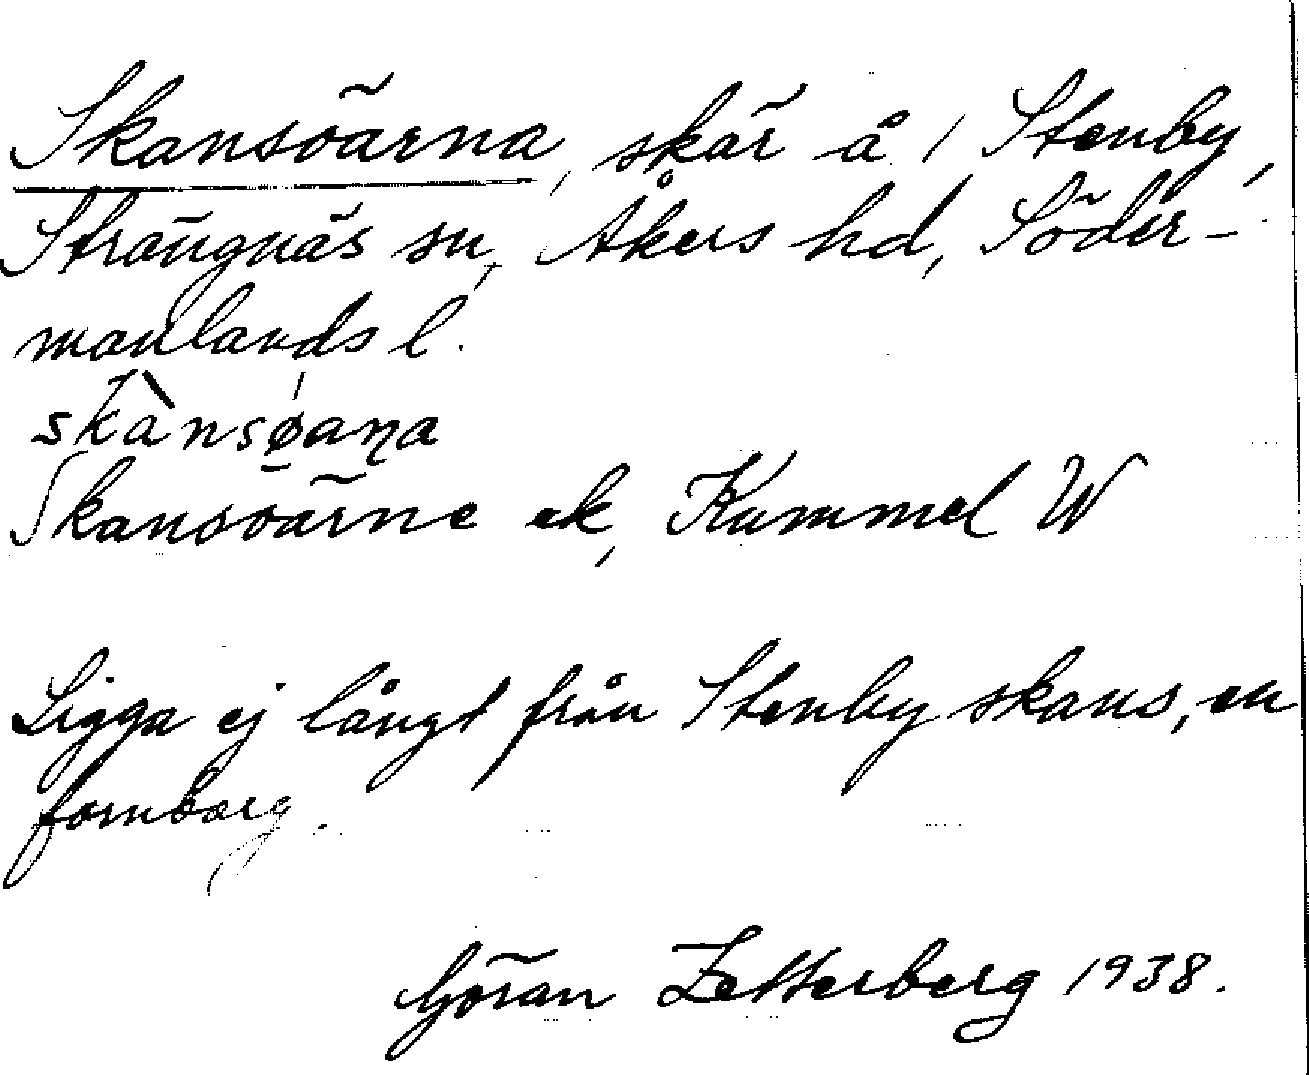 Skansöarna, skär å / Stenby,
Strängnäs sn, Åkers hd, Söder-
manlands l.
skànsøaṇa
Skansöarne ek, Kummel W
Ligga ej långt från Stenby skans, en
fornborg.
Göran Zetterberg 1938.